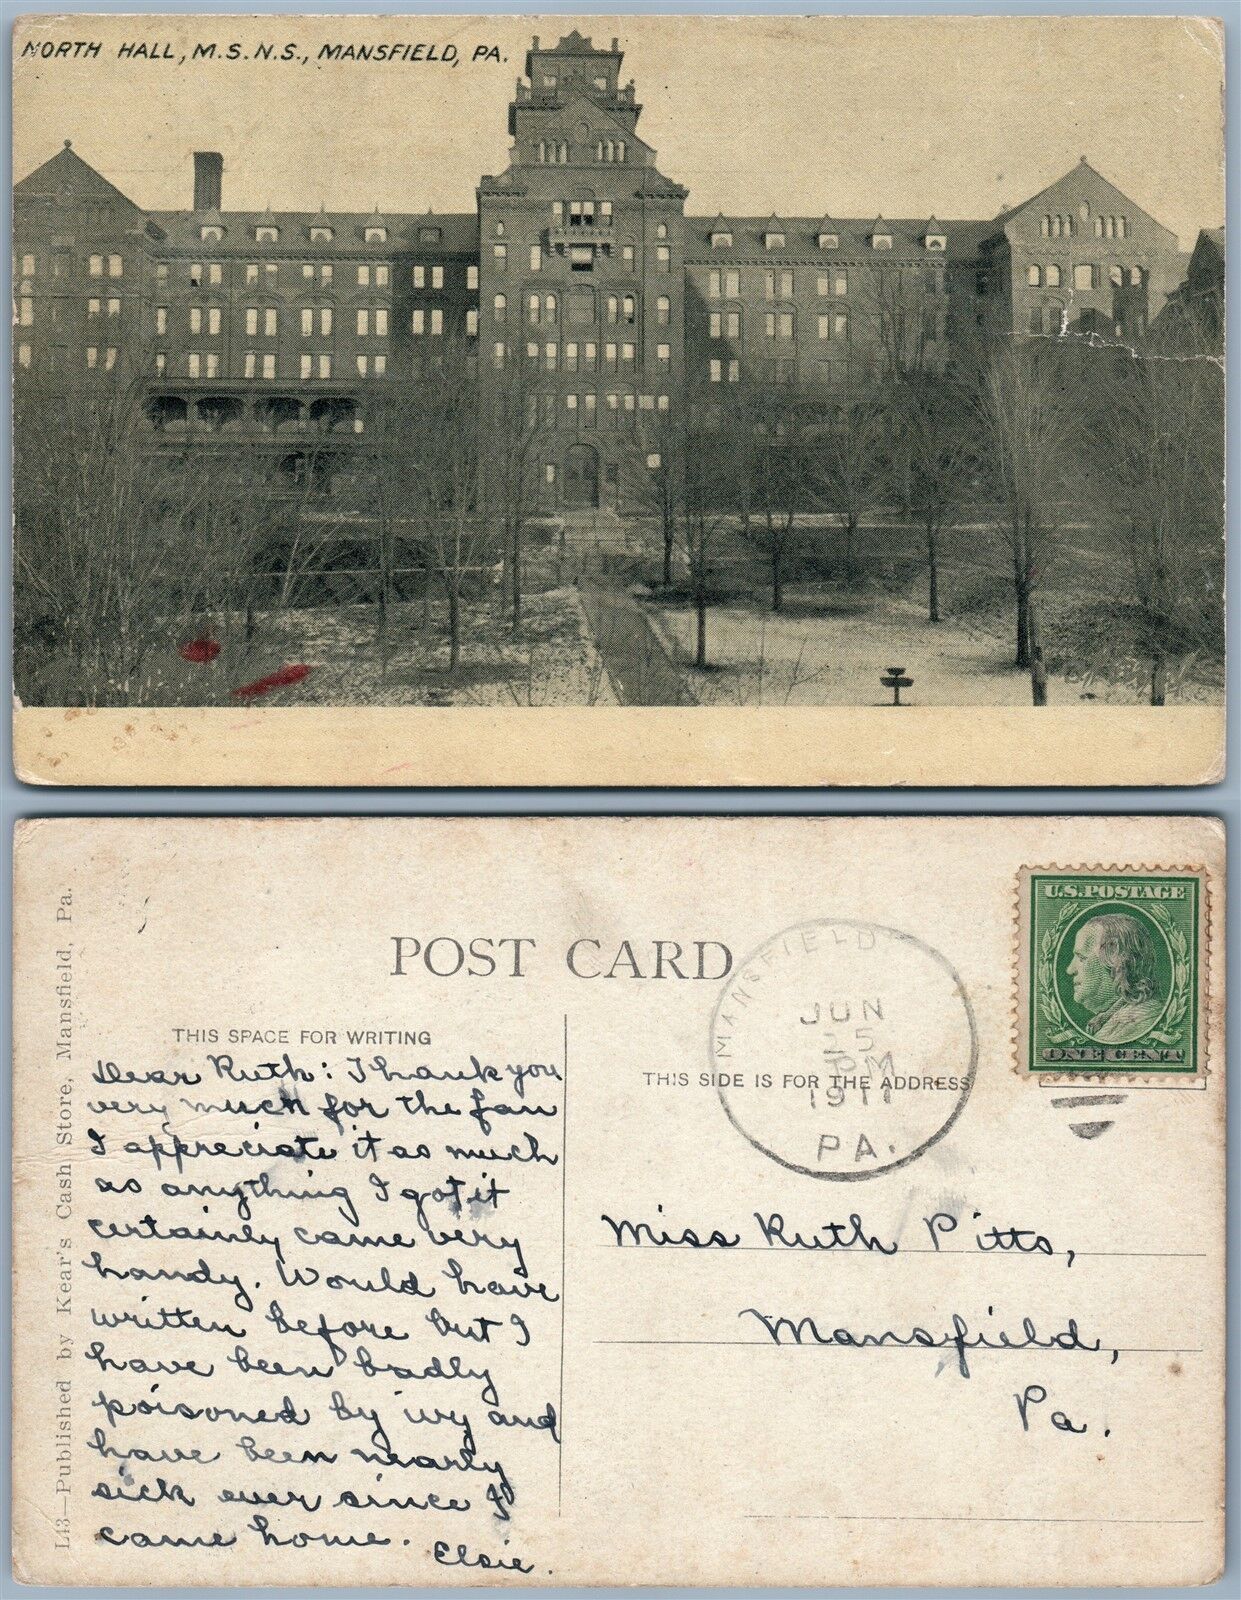 NORTH HALL, M.S.N.S., MANSFIELD, PA.
L43—Published by Kear's Cash Store, Mansfield, Pa.
POST CARD
THIS SPACE FOR WRITING
Dear Ruth: Thank you
very much for the fan
I appreciate it as much
as anything I got it
certainly came very
handy. Would have
written before but I
have been badly
poisoned by ivy and
have been nearly
sick ever since I
came home.
Elsie.
MANSFIELD
JUN
25
PM
1911
PA.
U.S. POSTAGE
ONE CENT
THIS SIDE IS FOR THE ADDRESS
Miss Ruth Pitts,
Mansfield,
Pa.